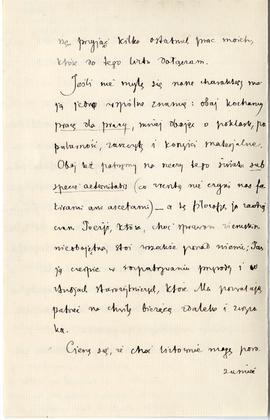 się przyjąć kilka ostatnich prac moich,
które do tego listu dołączam.
Jeśli nie mylę się nasze charaktery ma-
ją jedno wspólne znamię: obaj kochamy
pracę dla pracy, mniej dbając o poklask, po-
pularność, zaszczyty i korzyści materjalne.
Obaj też patrzymy na rzeczy tego świata sub
specie aeternitatis (co zresztą nie czyni nas fa-
kirami ani ascetami) — a tę filozofję ja zawdzię-
czam Pięści, która, choć sprawom ziemskim
nieobojętna, stoi wszakże ponad niemi; Pan
ją czerpie w rozpatrywaniu przyrody i w
studjach starożytniczych, które Mu pozwalają
patrzeć na chwilę bieżącą zdaleka i zwyso-
ka.
Cieszę się, że choć listownie mogę poro-
zumieć